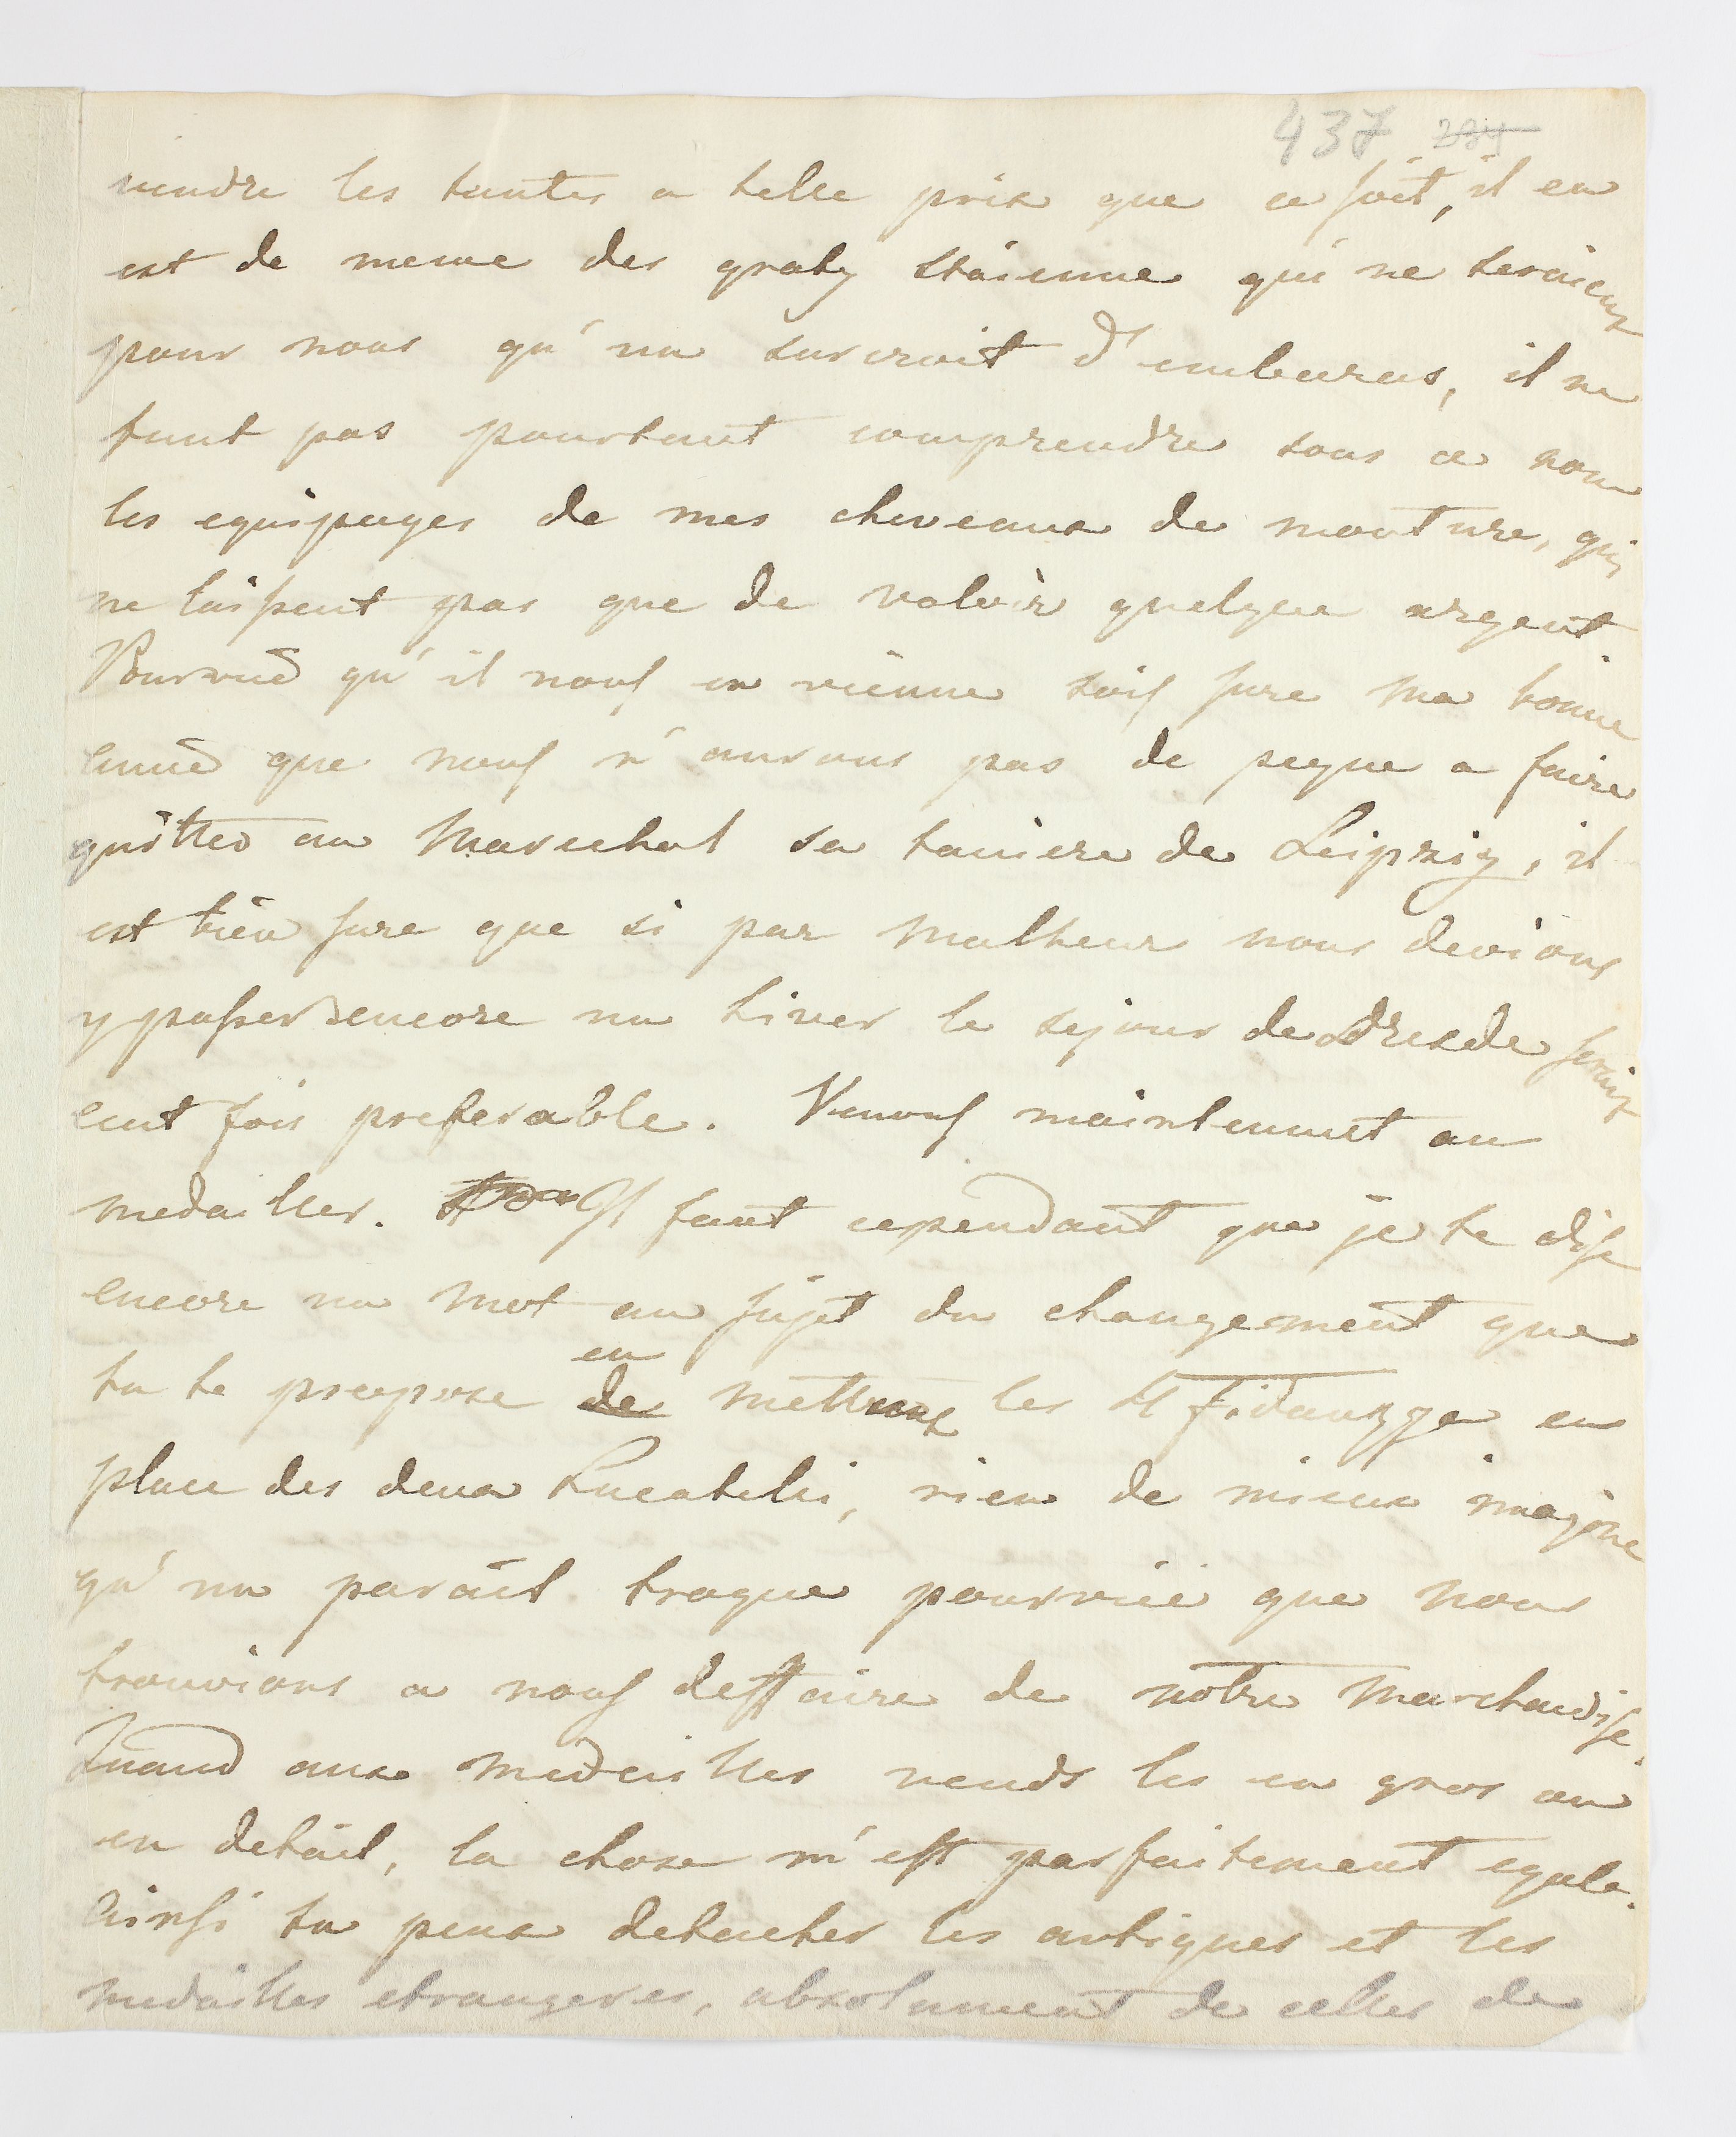 437 234
vendre les tentes a telle prix que ce soit, il en
est de meme des qui ne seroient
pour nous qu'un surcroit d'embaras, il ne
faut pas pourtant comprendre sous ce nom
les equipages de mes cheveaux de monture, qui
ne laissent pas que de valoir quelque argent.
Pourvuë qu'il nous en vienne sois sure ma bonne
amie que nous n'aurons pas de peque a faire
quitter au Marechal sa taniere de Leipzig, il
est bien sure que si par malheur nous devions
y passer encore un hiver le sejour de Dresde seroit
cent fois preferable. Venons maintenant au
medailler. Il faut cependant que je te dise
encore un mot au sujet du changement que
tu te propose de en mettant les 4 en
place des deux Lucatelei, rien de mieux imagine
qu'un pareil troque pourvuë que nous
trouvions a nous deffaire de notre marchandise.
Quand aux medailles vends les en gros ou
en detail, la chose m'est parfaitement egale.
ainsi tu peux detacher les antiques et les
medailles etrangeres, absolument de celles de